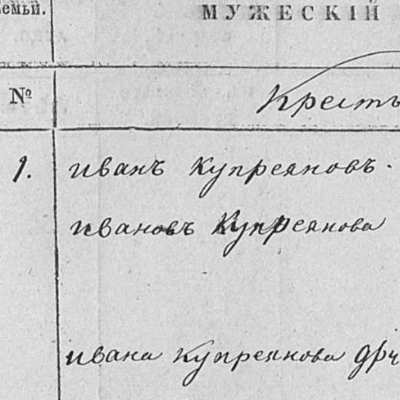 емьи.
МУЖЕСКІЙ
№
Кресть
1. иванъ Купреяновъ.
ивановъ Купреянова
ивана Купреянова друг